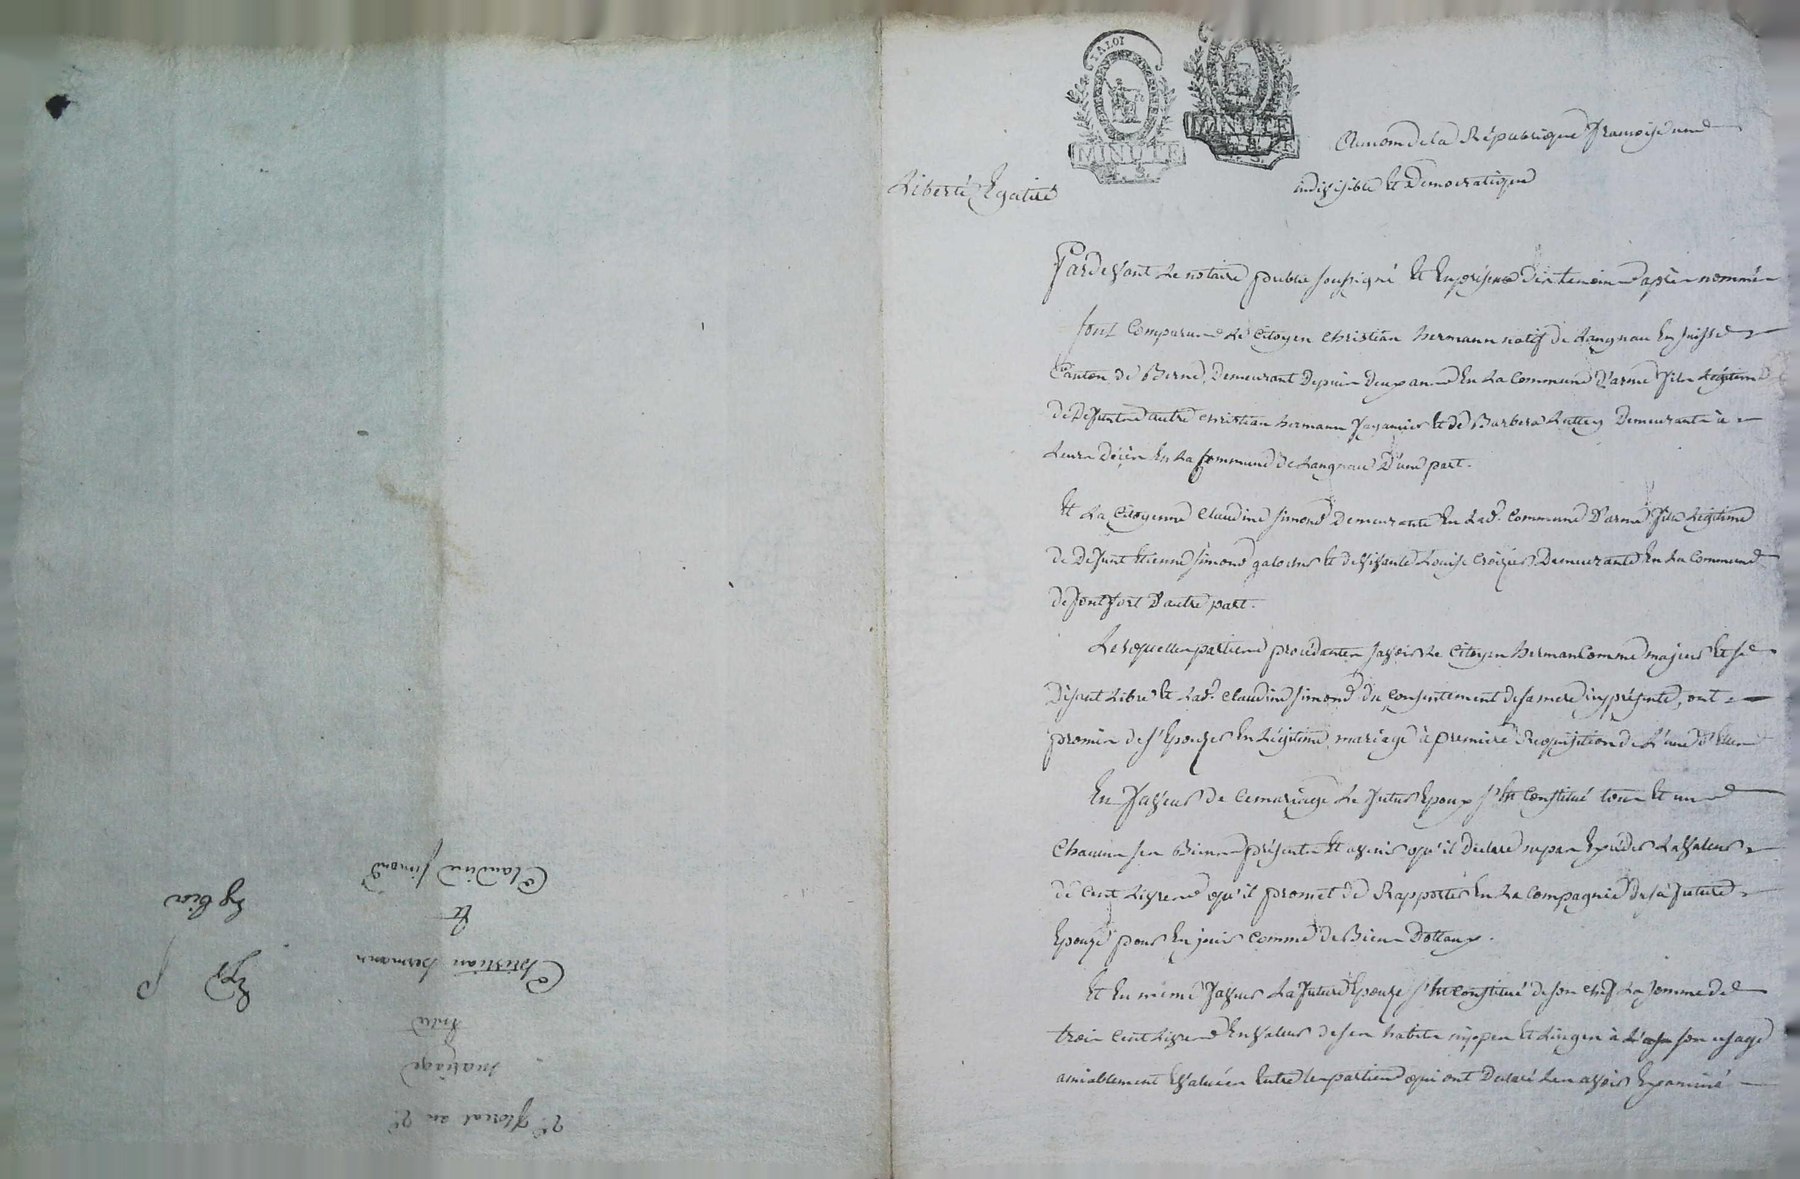 LA LOI
MINUTE
MINUTE
Au nom de la République françoise une
Liberté Egalité
indivisible et Democratique
Pardevant Le notaire public soussigné et En présence des temoins apres nommés
sont Comparus Le Citoyen Christian hermann natif de Langnau En suisse
Canton de Berne, Demeurant Depuis deux ans En La Commune D'arme fils Légitime
de Defunts autre Christian hermann et de Barbera Demeurants à
Leurs décès En La Commune de Langnau D'une part.
Et La Citoyenne Claudine simond Demeurante En Lad. Commune D'arme fille Légitime
de Defunt Etienne simond et de vivante Louise Demeurante En La Commune
de pontfort D'autre part.
Lesquelles parties procédantes savoir Le Citoyen herman Comme majeur et se
Disant Libre et Lad. Claudine simond du Consentement de sa mere icy présente, ont
promis de s'Epouser En Légitime mariage à premiere Requisition de L'une d'Elles
En faveur de Ce mariage Le futur Epoux s'est Constitué tous et un
Chacun ses Biens présents et avenir qu'il declare ne pas Excéder La valeur
de Cent Livres qu'il promet de Rapporter En La Compagnie de sa future
Epouse pour En jouir Comme de Biens Dottaux.
Et En même faveur La future Epouse s'est Constitué de son chef La somme de
trois Cent Livres En valeur de ses habits nippes et Linges à son usage
amiablement Evalués Entre les parties qui ont Declaré Les avoir Examiné
2e floreal an 7e
mariage
Entre
Christian hermann
et
Claudine simond